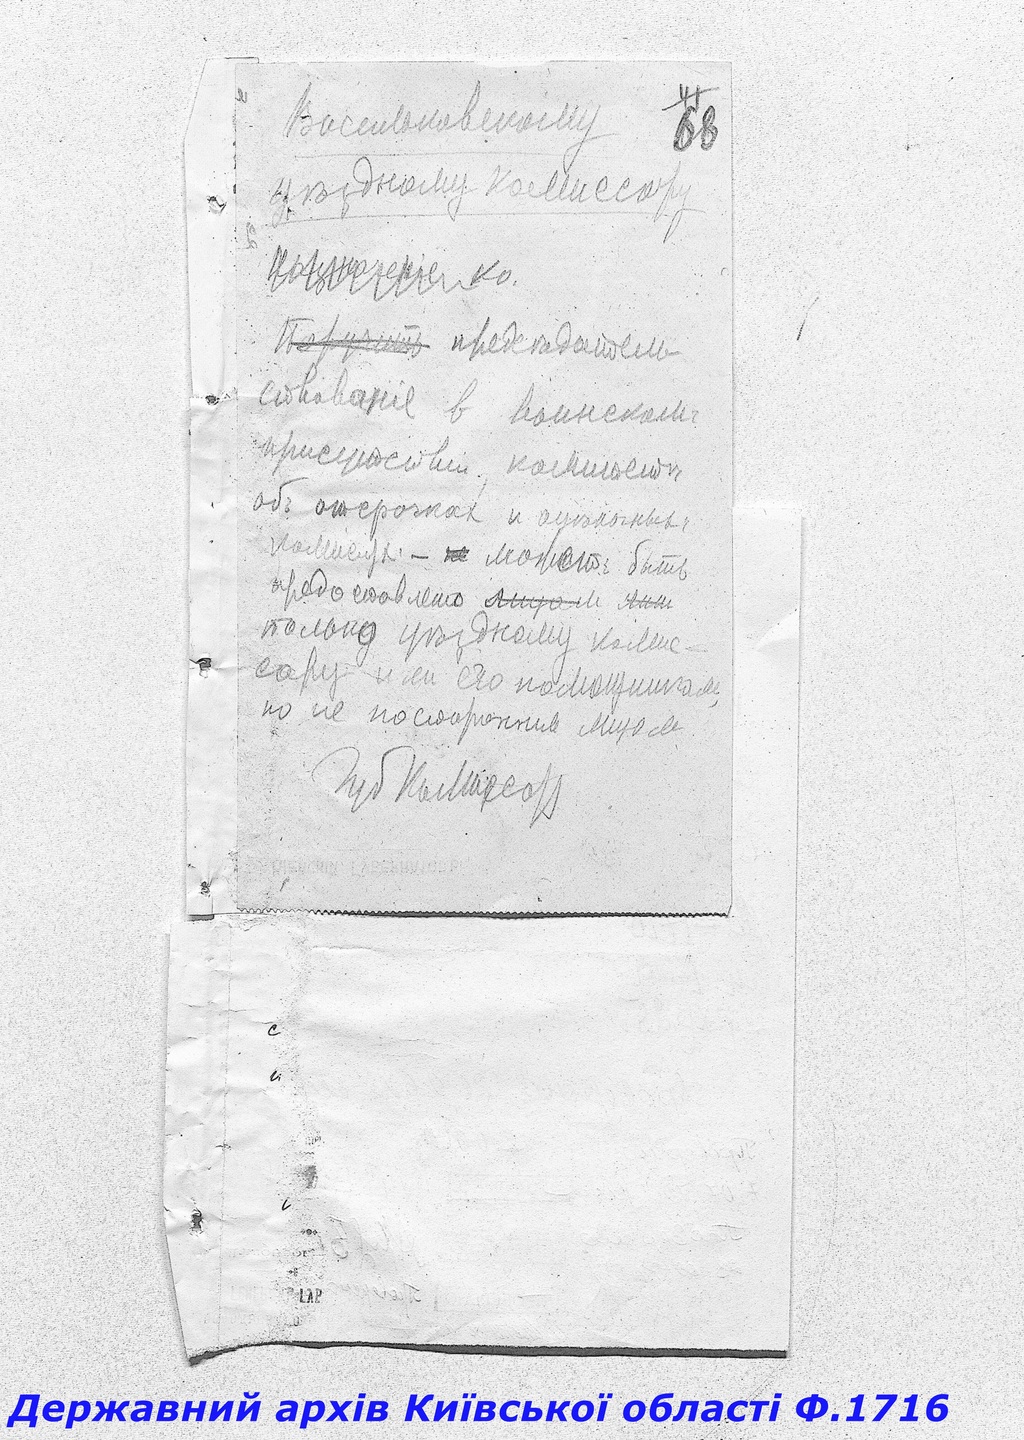 41
68
Васильковскому
уѣздному комиссару
ко.
Поручить предсѣдатель
ствованіе в воинскомъ
присутствіи, комитетѣ
объ отсрочках и оцѣночныхъ
комиссіях – не можетъ быть
предоставлено лицам
только уѣздному комис-
сару или его помощникам,
но не посторонним лицам
Губ Комиссар
LAP
Державний архів Київської області Ф.1716